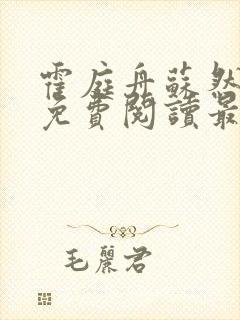 霍庭舟蘇然
免費閱讀最
毛麗君